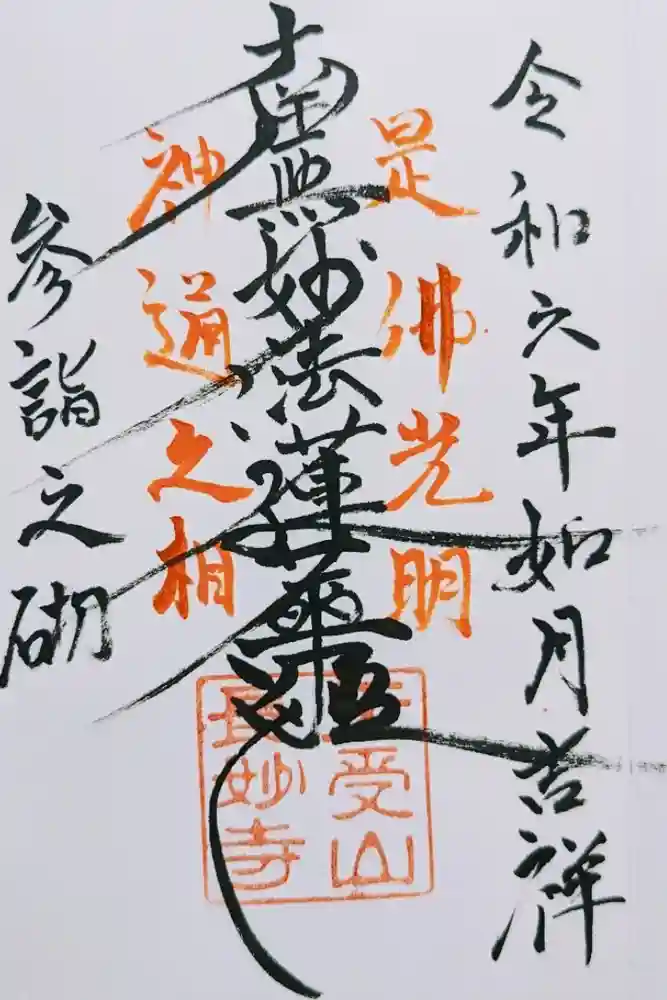 令和六年如月吉祥
是佛光明
南無妙法蓮華經
神通之相
参詣之砌
受山
長妙寺